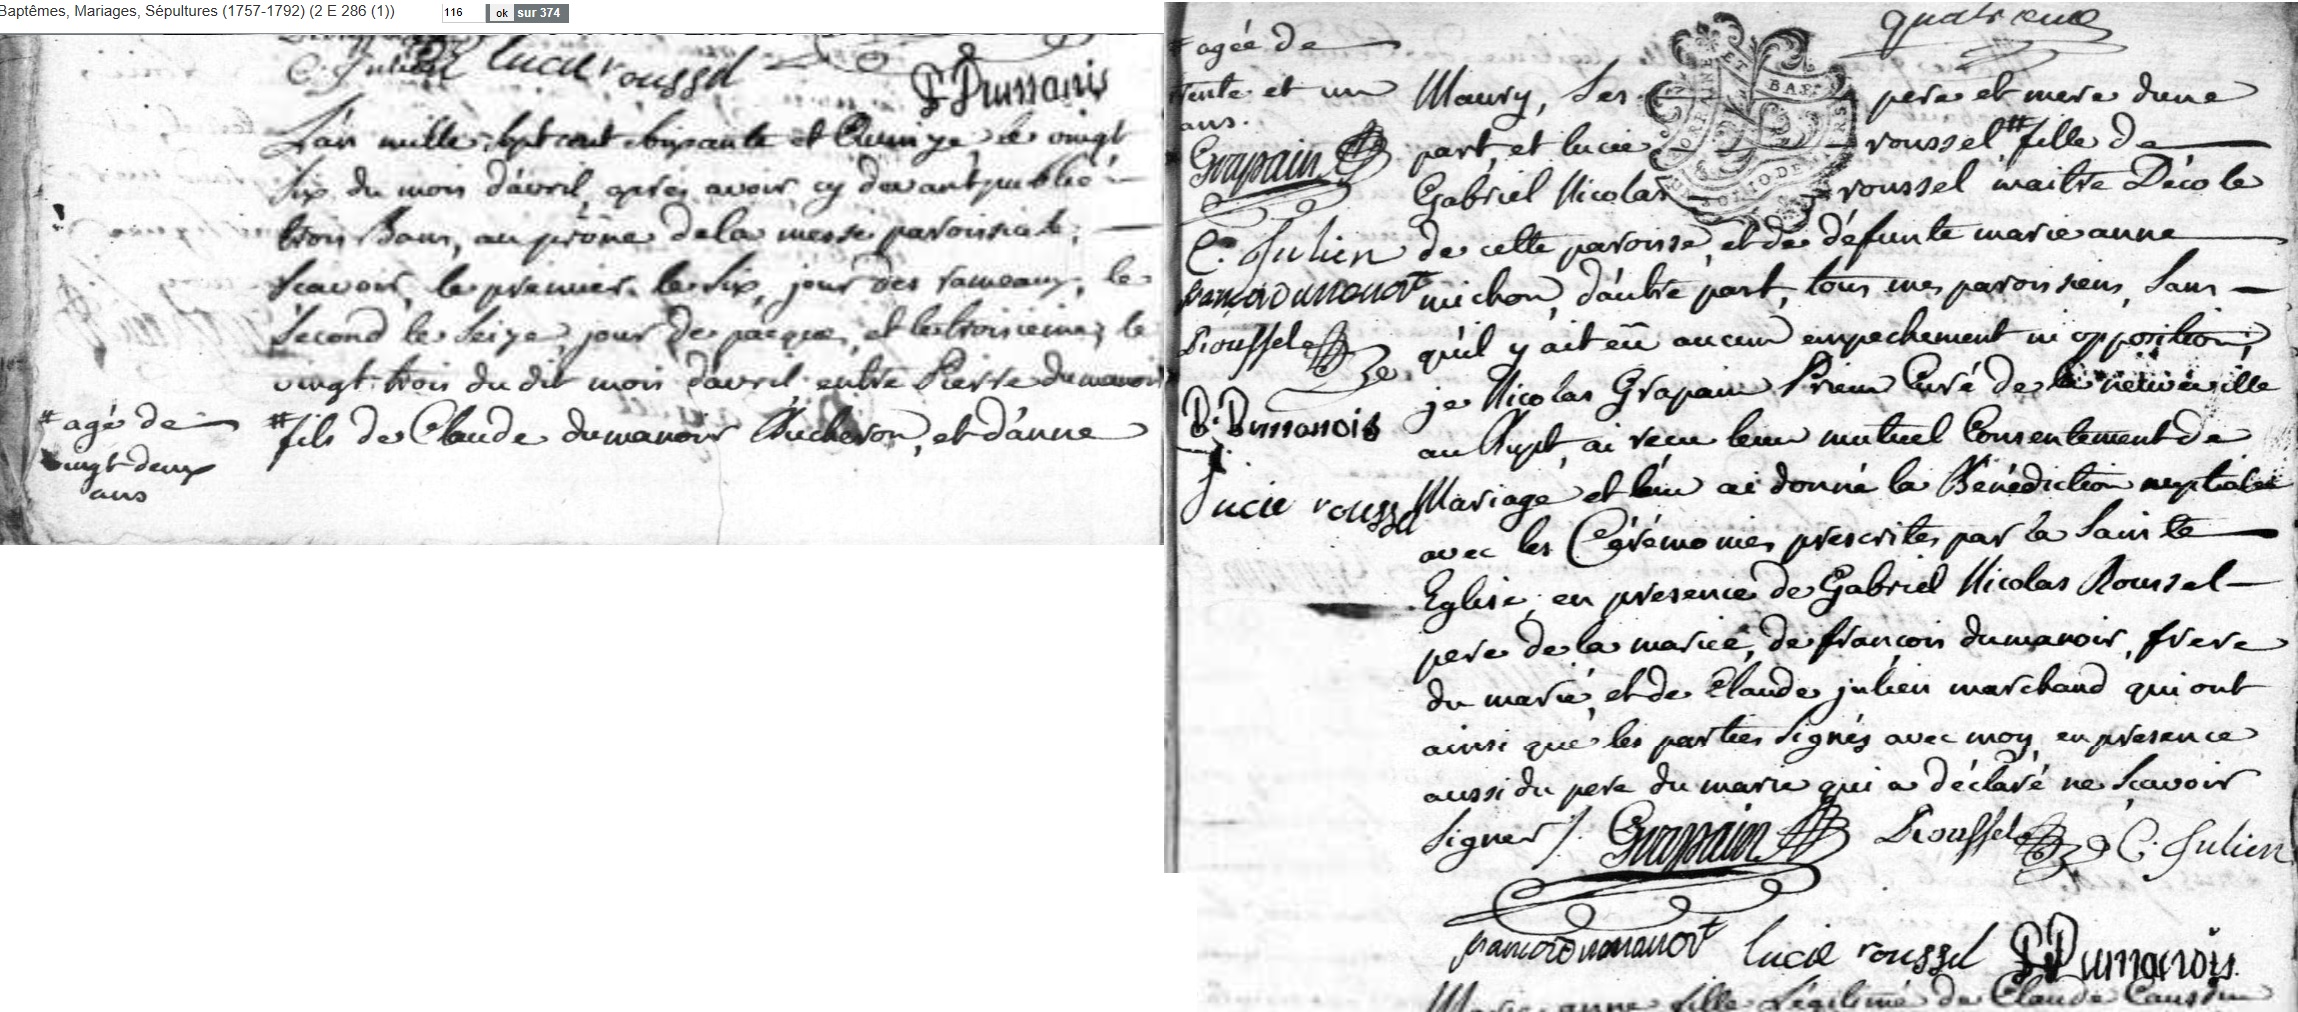 Baptêmes, Mariages, Sépultures (1757-1792) (2 E 286 (1))
116 ok sur 374
C. Julien lucie roussel
P Dumanois
L'an mille sept cent soixante et quinze le vingt
six du mois d'avril, après avoir cy devant publié
trois Bans, au prône de la messe paroissiale,
scavoir, le premier le six, jour des rameaux, le
second le seize jour de pacque, et le troisieme, le
vingt trois du dit mois d'avril entre Pierre dumanoir
# fils de Claude dumanoir Bucheron, et d'anne
# agé de
vingt deux
ans
quatrieme
Maury, ses pere et mere d'une
part, et lucie roussel # fille de
Gabriel Nicolas roussel maitre D'école
de cette paroisse, et de défunte marie anne
michon, d'autre part, tous mes paroissiens, sans
qu'il y ait eü aucun empechement ni opposition,
je Nicolas Grapain Prieur Curé de la neuveville
au Rupt, ai recu leur mutuel Consentement de
Mariage et leur ai donné la Bénédiction nuptiale
avec les Cérémonies prescrites par la Sainte
Eglise, en presence de Gabriel Nicolas Roussel
pere de la mariée, de françois dumanoir, frere
du marié, et de Claude julien marchand qui ont
ainsi que les parties signés avec moy en presence
aussi du pere du marié qui a déclaré ne scavoir
signer /. Grapain Roussel C. Julien
francois dumanoir lucie roussel P Dumanois
Marie anne fille légitime de Claude
# agée de
trente et un
ans.
Grapain
C. Julien
francois dumanoir
Roussel
P. Dumanois
Lucie roussel
LORRAINE ET BAR